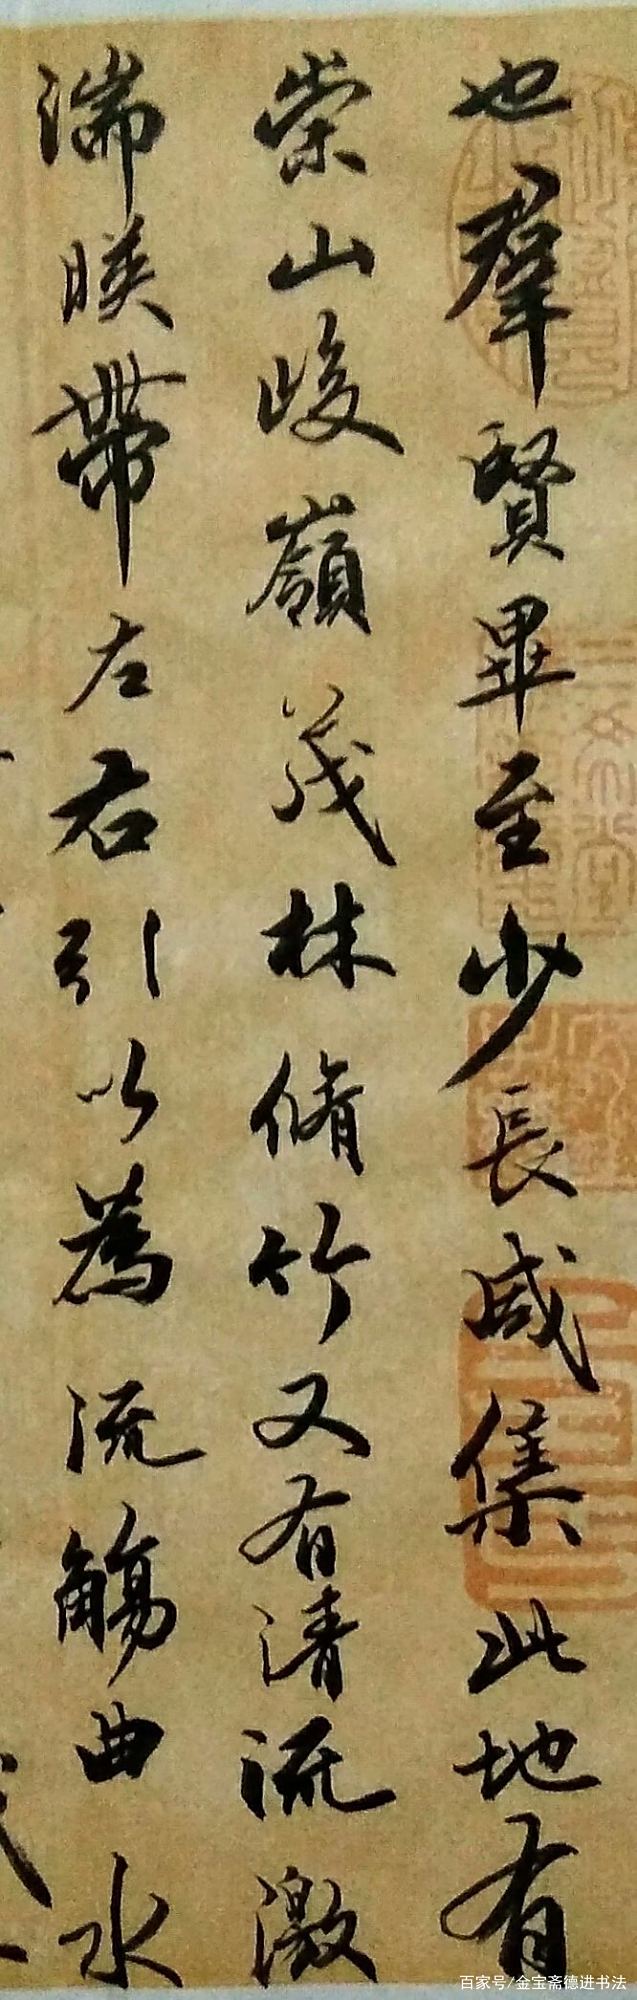 也羣賢畢至少長咸集此地有
崇山峻嶺茂林脩竹又有清流激
湍暎帶左右引以為流觴曲水
百家号/金宝斋德进书法